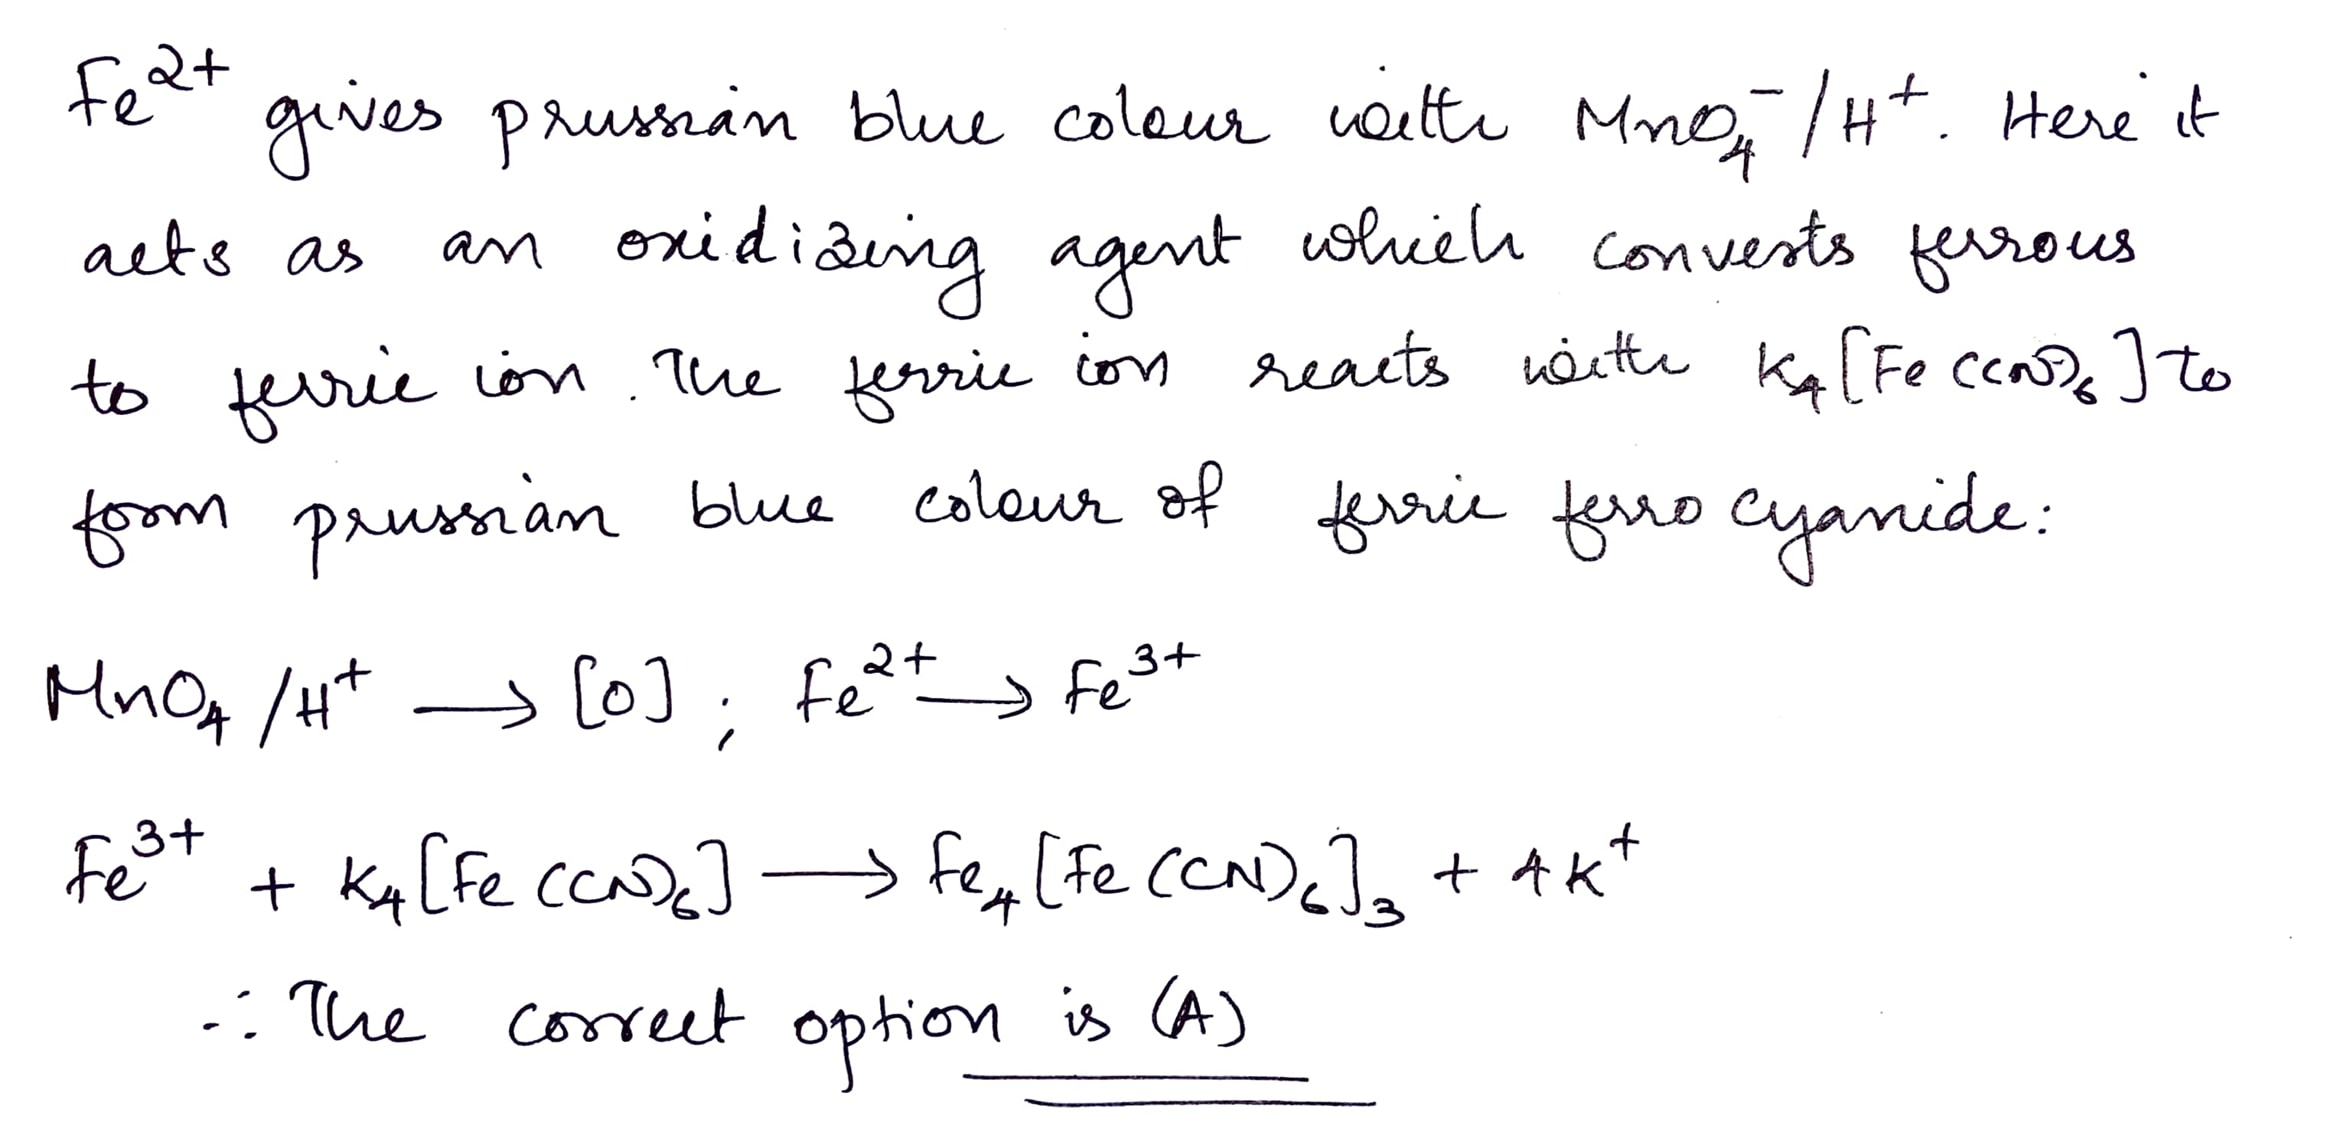 Fe²⁺ gives prussian blue colour with MnO₄⁻/H⁺. Here it
acts as an oxidizing agent which converts ferrous
to ferric ion. The ferric ion reacts with K₄[Fe(CN)₆] to
form prussian blue colour of ferric ferro cyanide:
MnO₄/H⁺ ⟶ [O] ; Fe²⁺ ⟶ Fe³⁺
Fe³⁺ + K₄[Fe(CN)₆] ⟶ Fe₄[Fe(CN)₆]₃ + 4K⁺
∴ The correct option is (A)